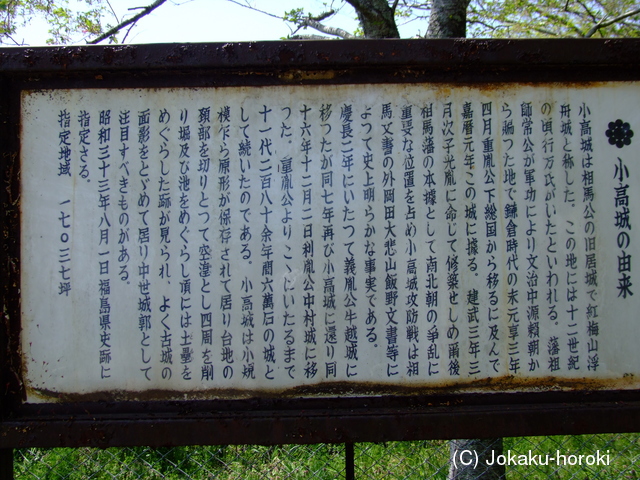 小高城の由来
小高城は相馬公の旧居城で紅梅山浮
舟城と称した。この地には十二世紀
の頃行方氏がいたといわれる。藩祖
師常公が軍功により文治中源頼朝か
ら賜つた地で鎌倉時代の末元享三年
四月重胤公下総国から移るに及んで
嘉暦元年この城に據る。建武三年三
月次子光胤に命じて修築せしめ爾後
相馬藩の本據として南北朝の争乱に
重要な位置を占め小高城攻防戦は相
馬文書の外岡田大悲山飯野文書等に
よつて史上明らかな事実である。
慶長二年にいたつて義胤公牛越城に
移つたが同七年再び小高城に還り同
十六年十二月二日利胤公中村城に移
つた。重胤公よりこゝにいたるまで
十一代二百八十余年間六萬石の城と
して続いたのである。小高城は小規
模乍ら原形が保存されて居り台地の
頚部を切りとつて空湟とし四周を削
り堀及び池をめぐらし頂には土壘を
めぐらした跡が見られ、よく古城の
面影をとゞめて居り中世城郭として
注目すべきものがある。
昭和三十三年八月一日福島県史跡に
指定さる。
指定地域 一七〇三七坪
(C) Jokaku-horoki